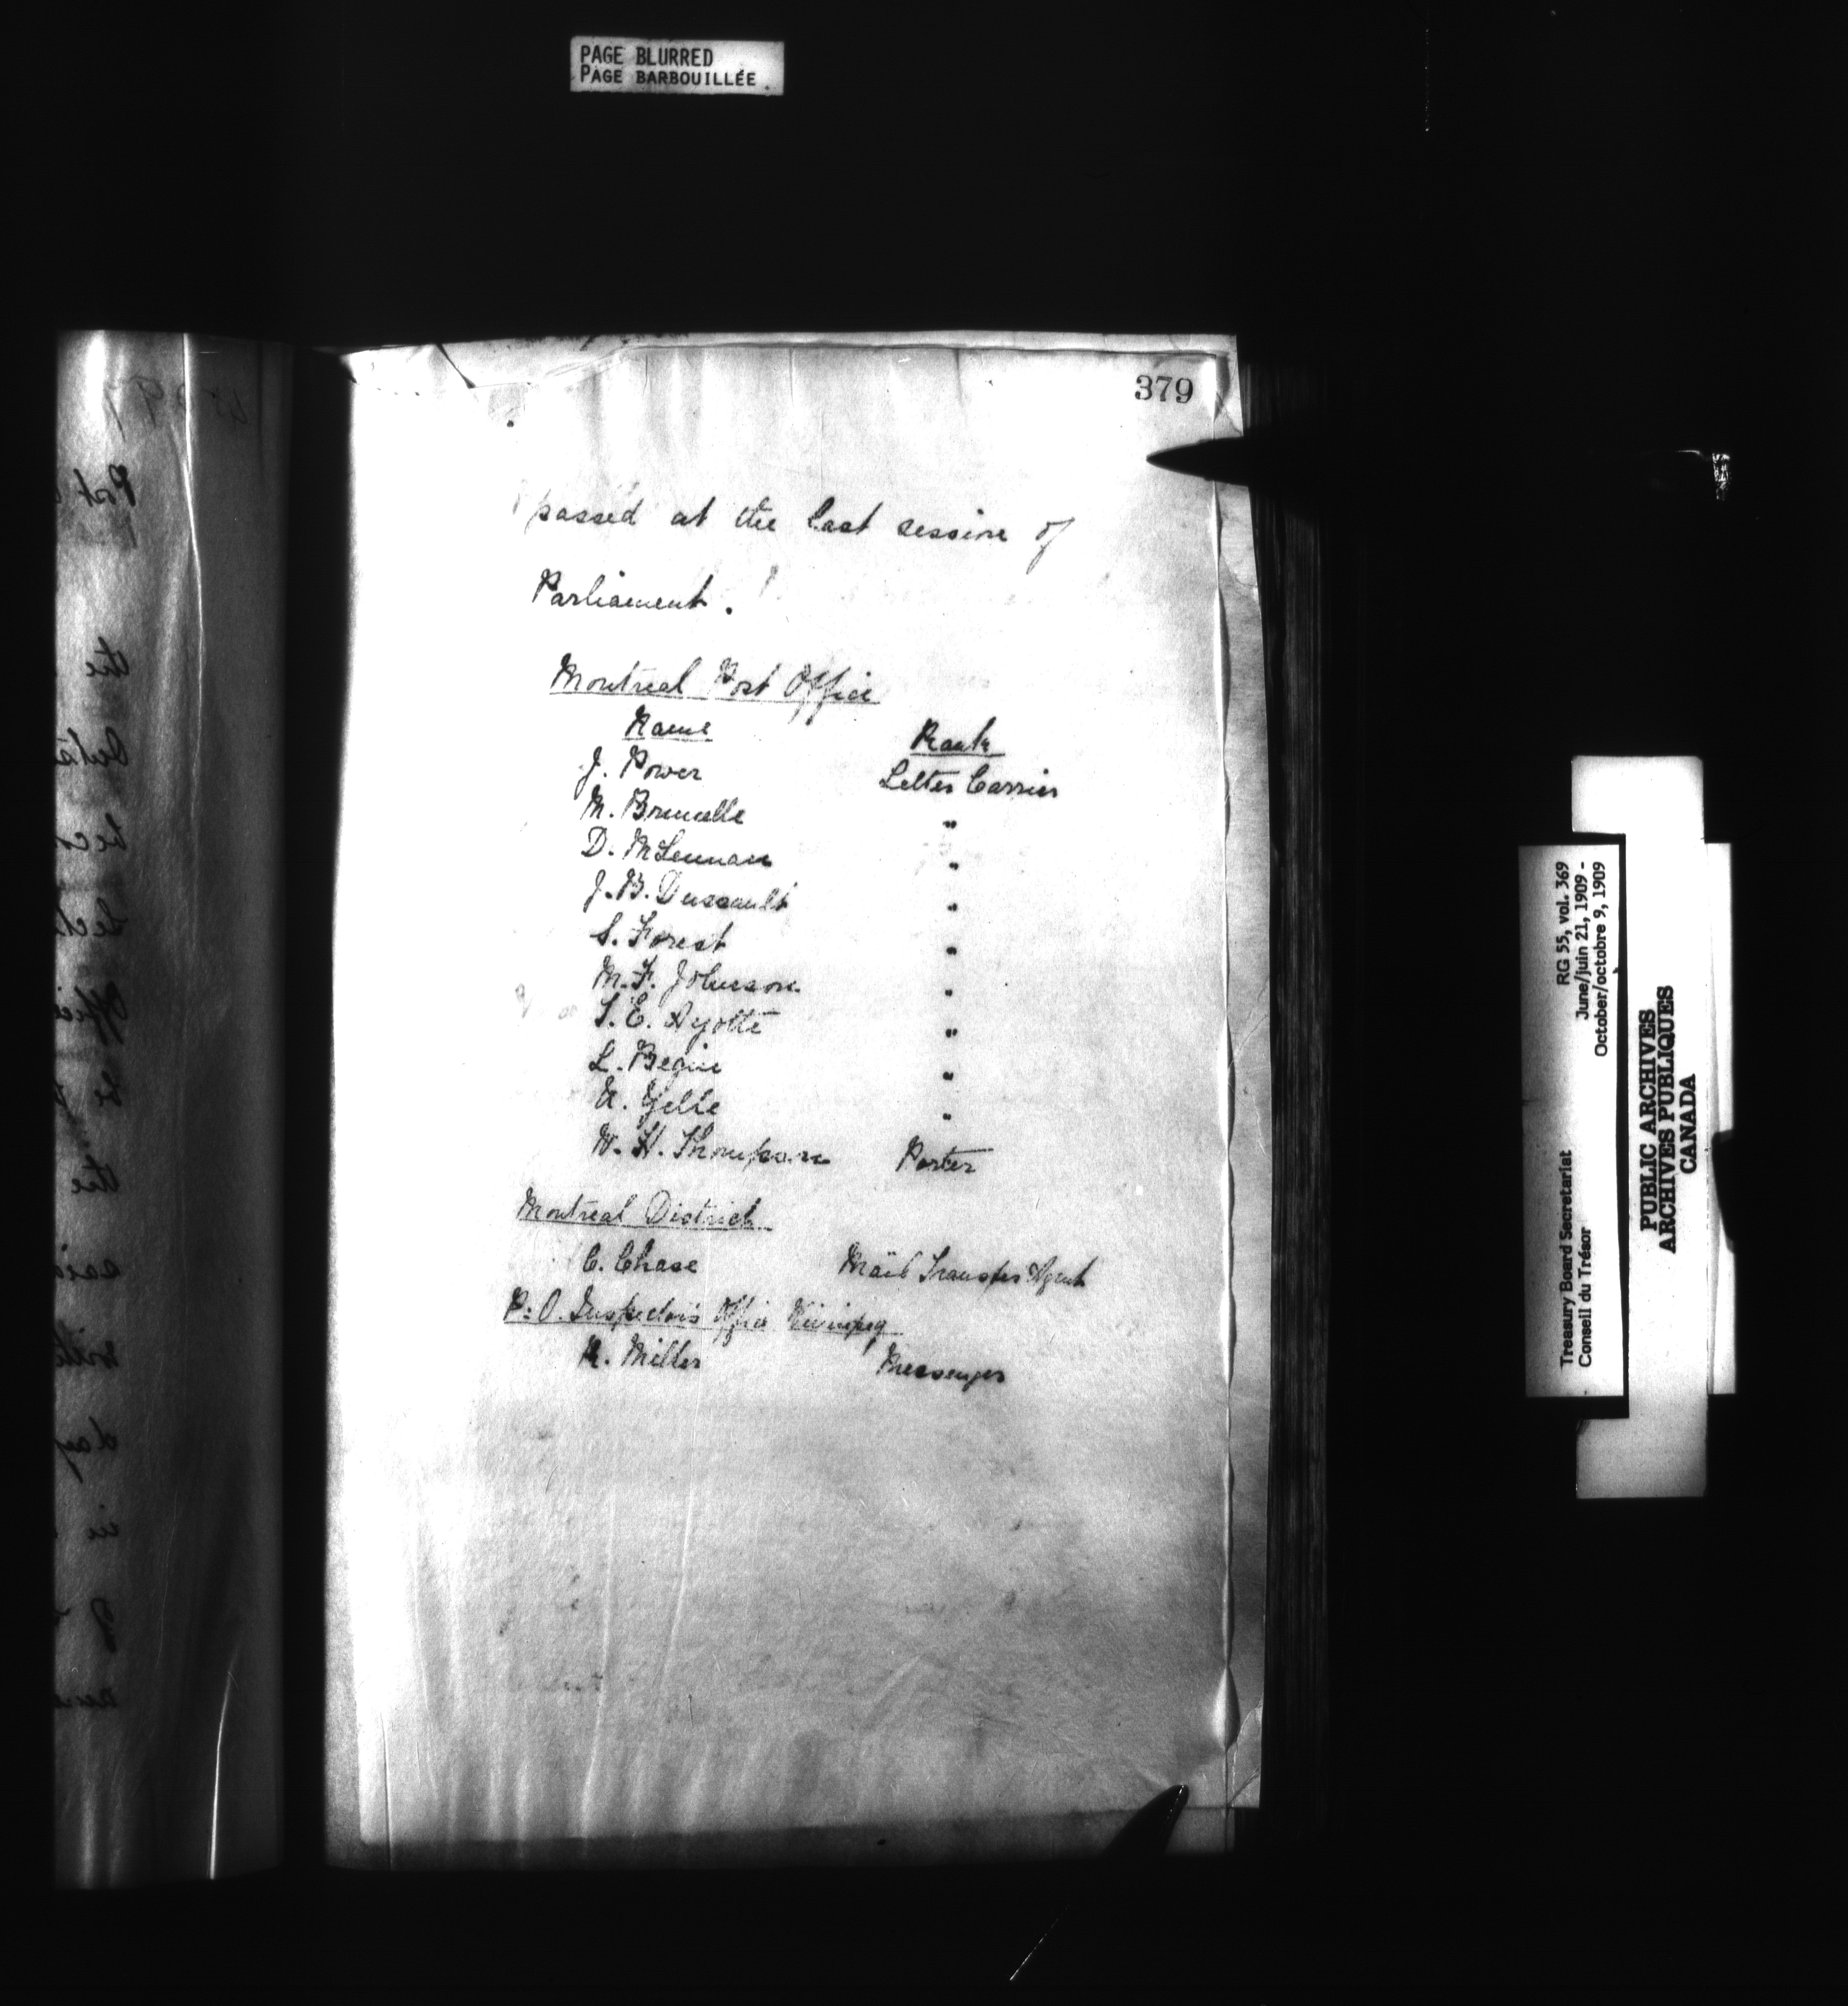 PAGE BLURRED
PAGE BARBOUILLÉE.
379
passed at the last session of
Parliament.
Montreal Post Office
Name Rank
J. Power Letter Carrier
M. Brunelle "
D. McLennan "
J. B. Dussault "
S. Forest "
M. F. Johnson "
S. E. Ayotte "
L. Begin "
A. Yelle "
W. H. Thompson Porter
Montreal District
C. Chase Mail Transfer Agent
P. O. Inspector's Office Winnipeg
R. Miller Messenger
Treasury Board Secretariat RG 55, vol. 369
Conseil du Trésor June/juin 21, 1909 -
October/octobre 9, 1909
PUBLIC ARCHIVES
ARCHIVES PUBLIQUES
CANADA